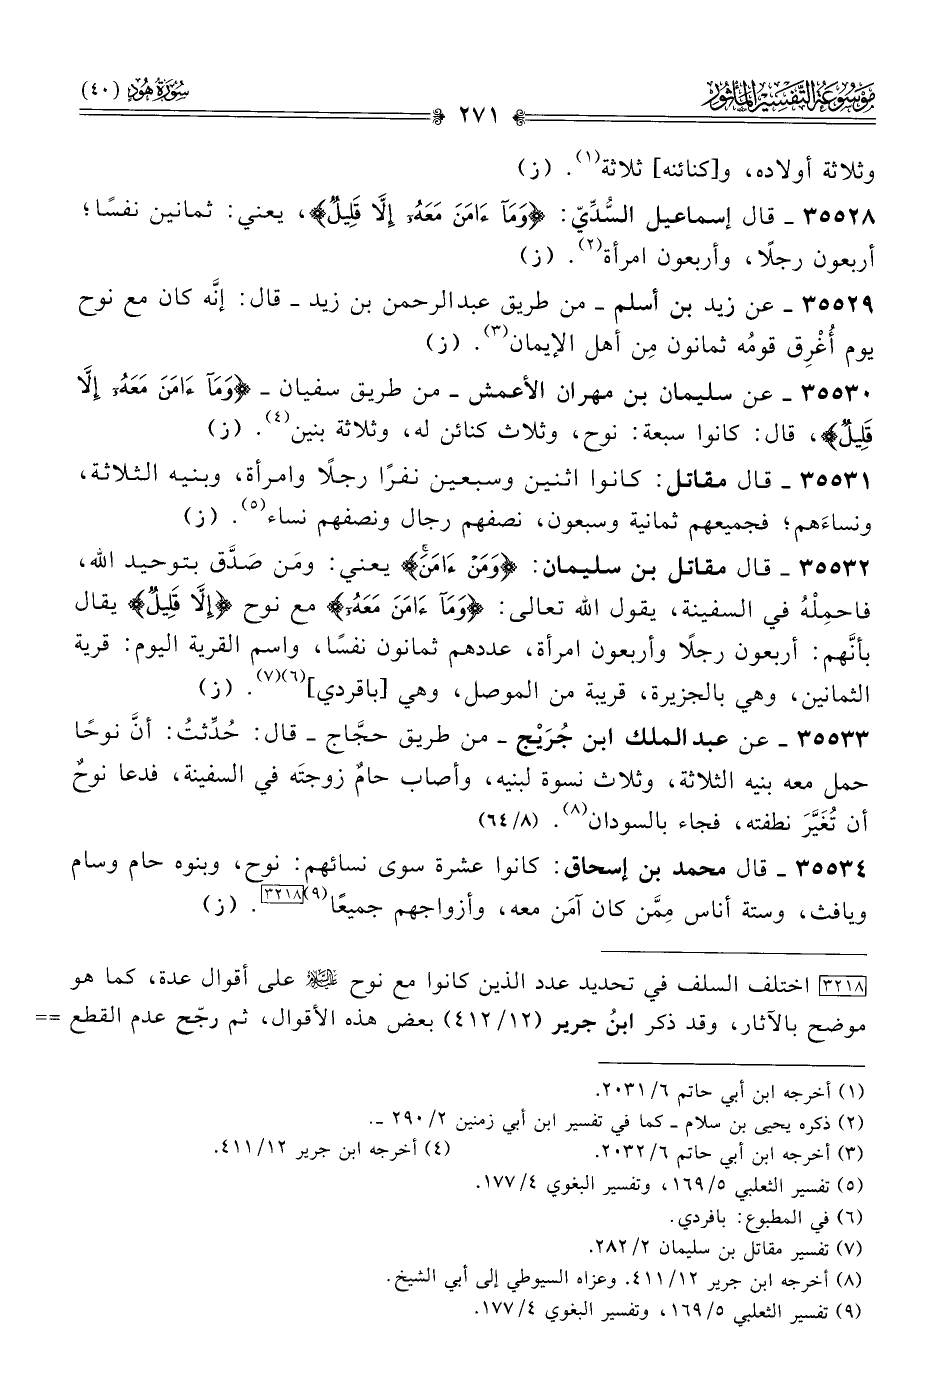 موسوعة التفسير المأثور
سورة هود (٤٠)
٢٧١
وثلاثة أولاده، و[كنائنه] ثلاثة(١). (ز)
٣٥٥٢٨ ـ قال إسماعيل السُّدِّيّ: ﴿وَمَآ ءَامَنَ مَعَهُۥٓ إِلَّا قَلِيلٌ﴾، يعني: ثمانين نفسًا؛
أربعون رجلًا، وأربعون امرأة(٢). (ز)
٣٥٥٢٩ ـ عن زيد بن أسلم ـ من طريق عبدالرحمن بن زيد ـ قال: إنَّه كان مع نوح
يوم أُغْرِق قومُه ثمانون مِن أهل الإيمان(٣). (ز)
٣٥٥٣٠ ـ عن سليمان بن مهران الأعمش ـ من طريق سفيان ـ ﴿وَمَآ ءَامَنَ مَعَهُۥٓ إِلَّا
قَلِيلٌ﴾، قال: كانوا سبعة: نوح، وثلاث كنائن له، وثلاثة بنين(٤). (ز)
٣٥٥٣١ ـ قال مقاتل: كانوا اثنين وسبعين نفرًا رجلًا وامرأة، وبنيه الثلاثة،
ونساءَهم؛ فجميعهم ثمانية وسبعون، نصفهم رجال ونصفهم نساء(٥). (ز)
٣٥٥٣٢ ـ قال مقاتل بن سليمان: ﴿وَمَنْ ءَامَنَۚ﴾ يعني: ومَن صَدَّق بتوحيد الله،
فاحمِلْهُ في السفينة، يقول الله تعالى: ﴿وَمَآ ءَامَنَ مَعَهُۥٓ﴾ مع نوح ﴿إِلَّا قَلِيلٌ﴾ يقال
بأنَّهم: أربعون رجلًا وأربعون امرأة، عددهم ثمانون نفسًا، واسم القرية اليوم: قرية
الثمانين، وهي بالجزيرة، قريبة من الموصل، وهي [باقردي](٦)(٧). (ز)
٣٥٥٣٣ ـ عن عبدالملك ابن جُرَيْج ـ من طريق حجَّاج ـ قال: حُدِّثتُ: أنَّ نوحًا
حمل معه بنيه الثلاثة، وثلاث نسوة لبنيه، وأصاب حامُ زوجتَه في السفينة، فدعا نوحٌ
أن تُغَيَّرَ نطفته، فجاء بالسودان(٨). (٦٤/٨)
٣٥٥٣٤ ـ قال محمد بن إسحاق: كانوا عشرة سوى نسائهم: نوح، وبنوه حام وسام
ويافث، وستة أناس مِمَّن كان آمَن معه، وأزواجهم جميعًا(٩)[٣٢١٨]. (ز)
[٣٢١٨] اختلف السلف في تحديد عدد الذين كانوا مع نوح عليه السلام على أقوال عدة، كما هو
موضح بالآثار، وقد ذكر ابنُ جرير (٤١٢/١٢) بعض هذه الأقوال، ثم رجّح عدم القطع ==
(١) أخرجه ابن أبي حاتم ٢٠٣١/٦.
(٢) ذكره يحيى بن سلام ـ كما في تفسير ابن أبي زمنين ٢٩٠/٢ ـ.
(٣) أخرجه ابن أبي حاتم ٢٠٣٢/٦. (٤) أخرجه ابن جرير ٤١١/١٢.
(٥) تفسير الثعلبي ١٦٩/٥، وتفسير البغوي ١٧٧/٤.
(٦) في المطبوع: بافردي.
(٧) تفسير مقاتل بن سليمان ٢٨٢/٢.
(٨) أخرجه ابن جرير ٤١١/١٢. وعزاه السيوطي إلى أبي الشيخ.
(٩) تفسير الثعلبي ١٦٩/٥، وتفسير البغوي ١٧٧/٤.